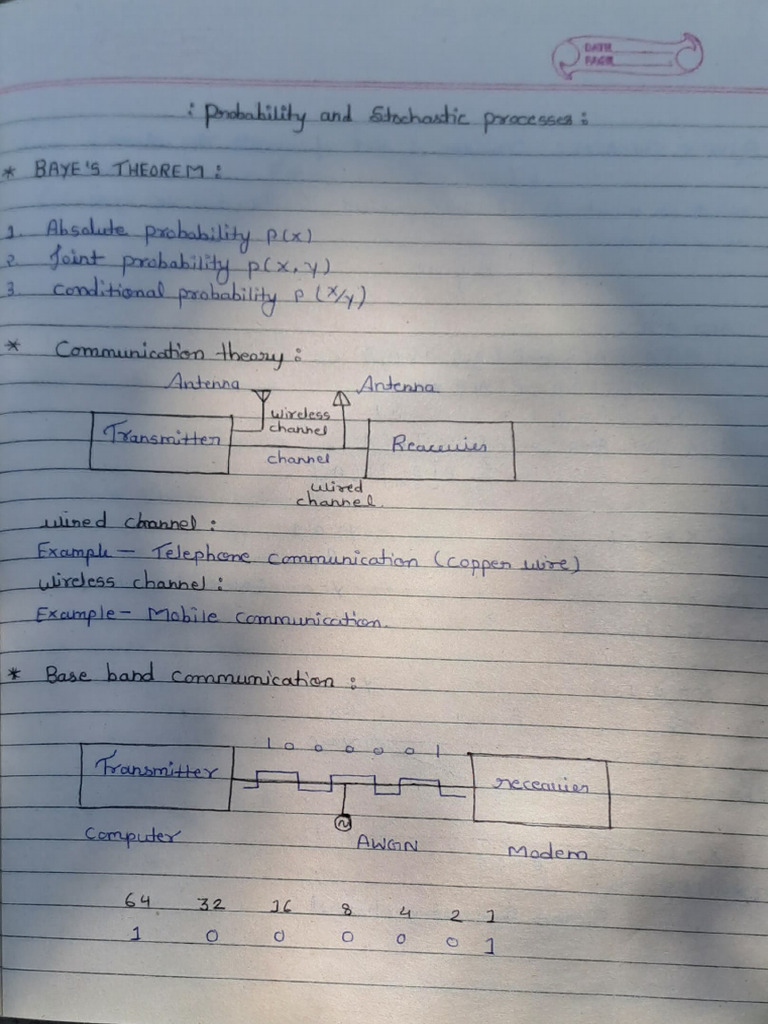 DATE
PAGE
: Probability and Stochastic processes :
* BAYE'S THEOREM :
1. Absolute probability P(x)
2. Joint probability p(x, y)
3. Conditional probability P (x/y)
* Communication theory :
Antenna Antenna
wireless
channel
Transmitter Receauier
channel
wired
channel.
wired channel :
Example - Telephone communication (copper wire)
wireless channel :
Example - Mobile communication.
* Base band communication :
1 0 0 0 0 0 1
Transmitter receauier
Computer AWGN Modem
64 32 16 8 4 2 1
1 0 0 0 0 0 1